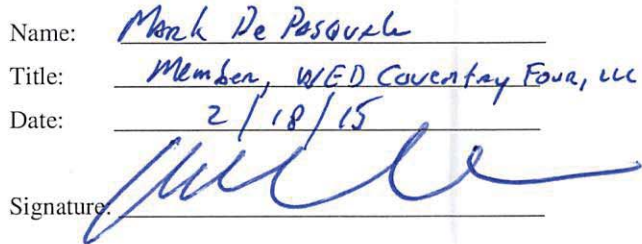 Name: Mark De Pasquale
Title: Member, WED Coventry Four, LLC
Date: 2/18/15
Signature: